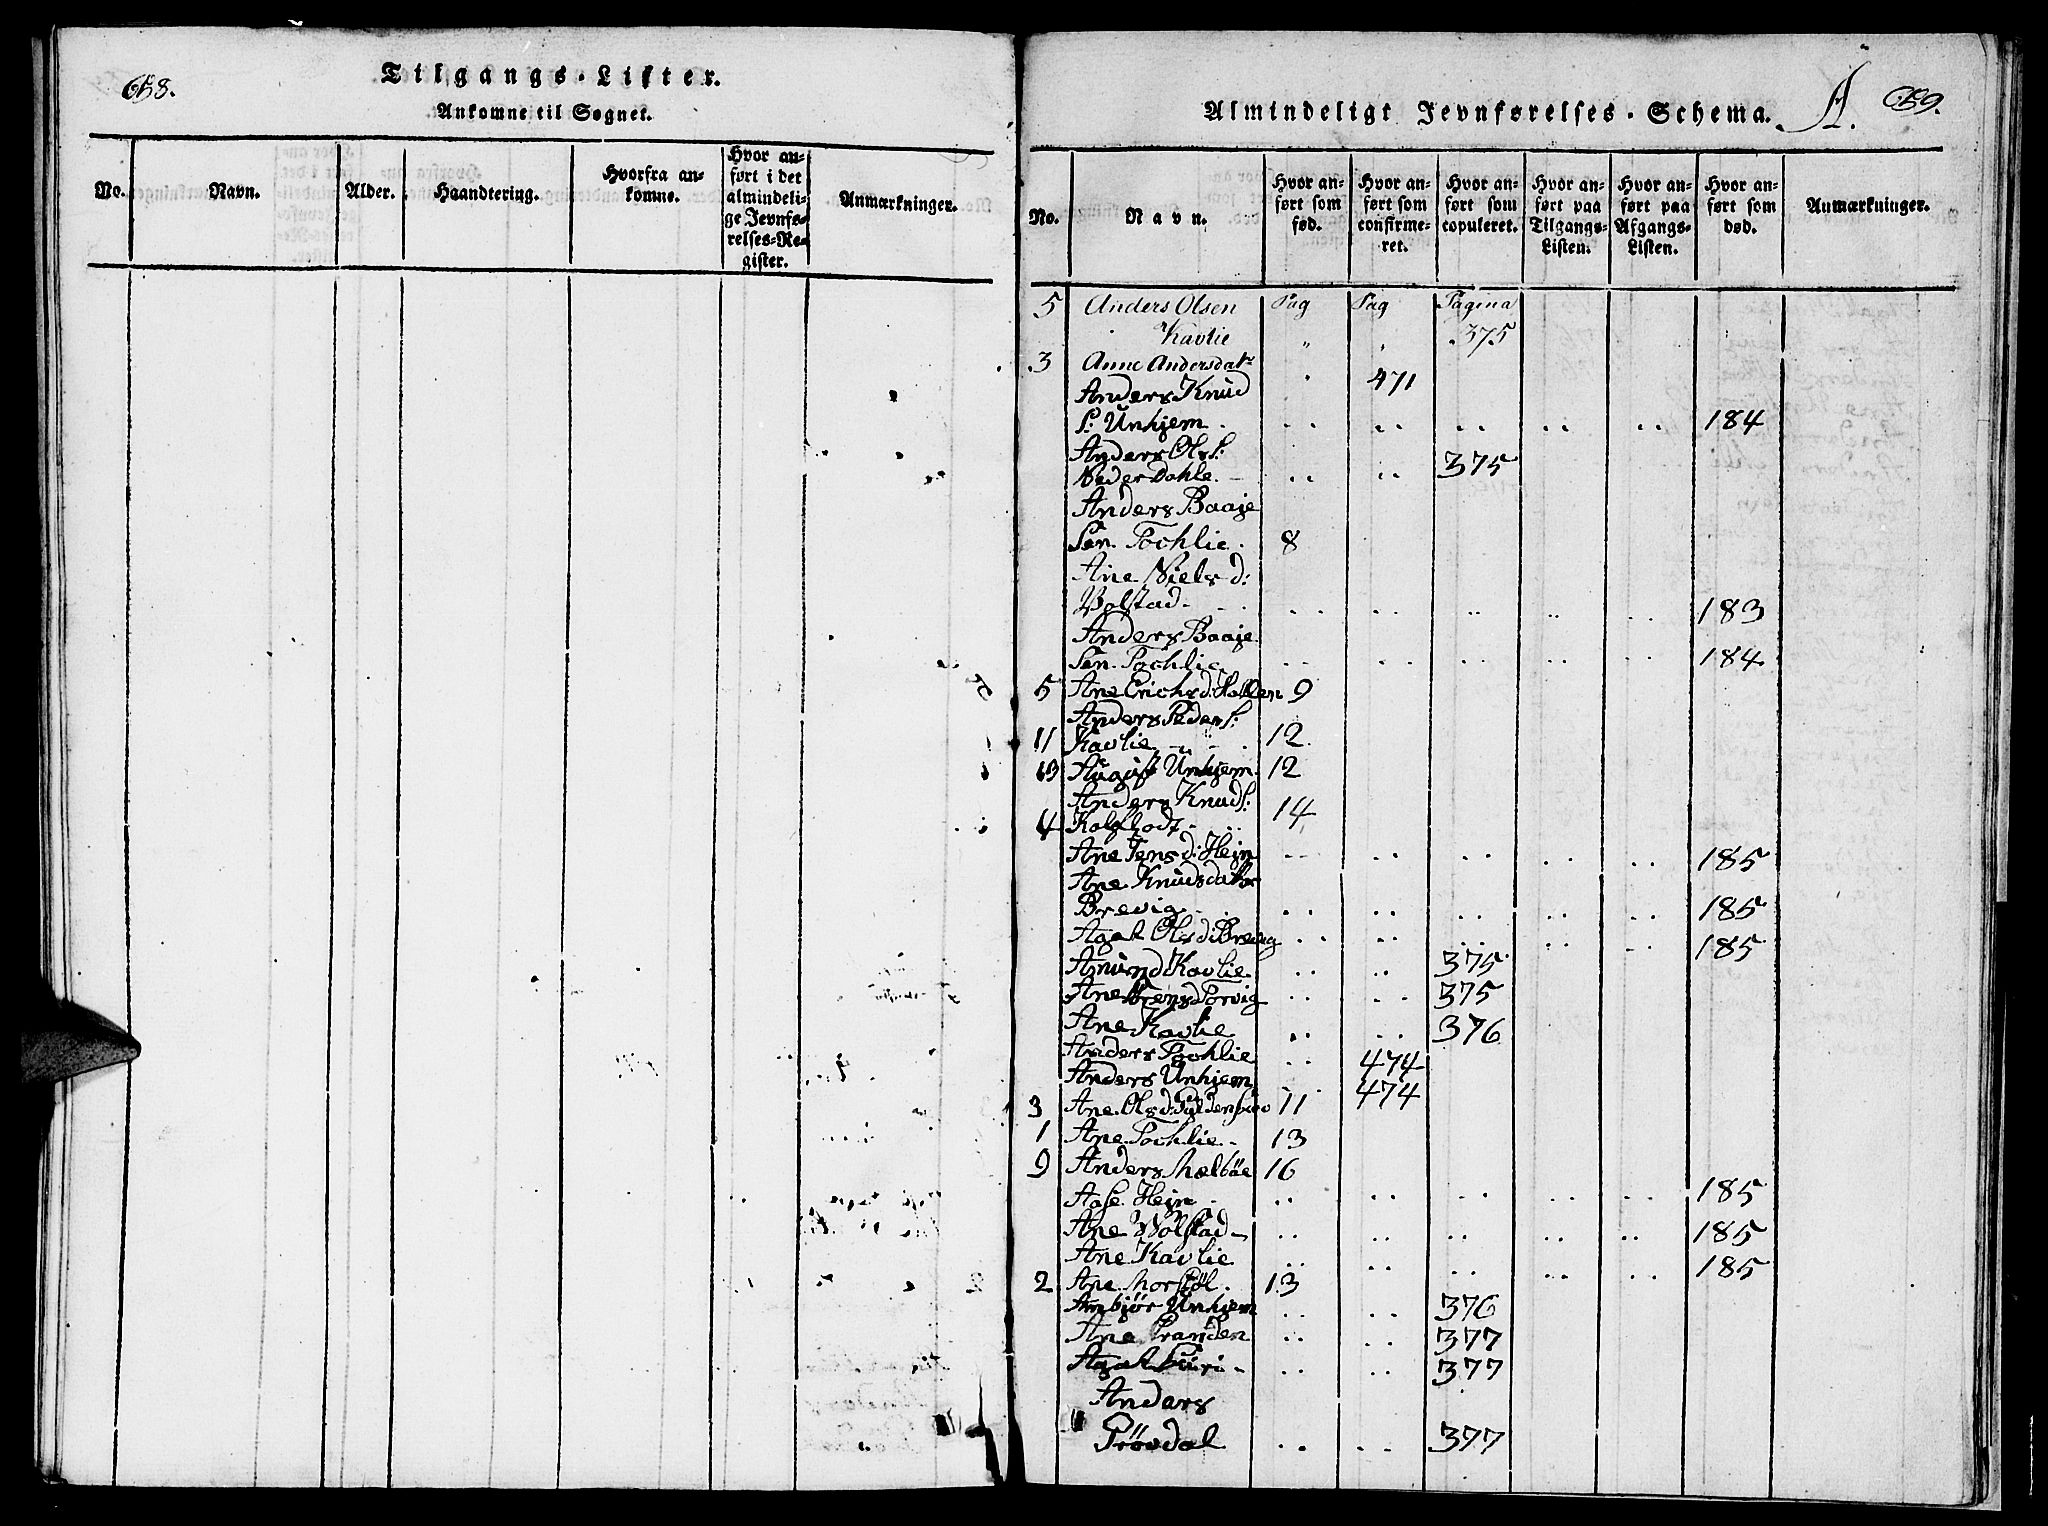 658.
Tilgangs-Lister.
Ankomne til Sognet.
No.
Navn.
Alder.
Haandtering.
Hvorfra an-
komne.
Hvor an-
ført i det
almindeli-
ge Jevnfø-
relses-Re-
gister.
Anmærkninger.
Almindeligt Jevnførelses-Schema. A. 659.
No.
Navn.
Hvor an-
ført som
fød.
Hvor an-
ført som
confirme-
ret.
Hvor an-
ført som
copuleret.
Hvor an-
ført paa
Tilgangs-
Listen.
Hvor an-
ført paa
Afgangs-
Listen.
Hvor an-
ført som
død.
Anmærkninger.
5 Anders Olsen Pag Pag Pagina
Kavlie " " 375
3 Anne Andersdatr " 471
Anders Knud
S: Unhjem 184
Anders Ols S:
Neder Dahle 375
Anders Baaje
Sen. Tochlie 8
Ane Niels d:
Volstad 183
Anders Baaje
Sen. Tochlie 184
5 Ane Erichs d: Hollen 9
Anders Peder S:
11 Kavlie 12
13 August Unhjem 12
Anders Knud S:
4 14
Ane Jens d: Hejn 185
Ane Knudsdatter
Brevig 185
Agat Ols d: Brevig 185
Amund Kavlie 375
Ane 375
Ane Kavlie 376
Anders Tochlie 474
Anders Unhjem 474
3 Ane Ols d: 11
1 Ane Tochlie 13
9 Anders Mælbøe 16
Aase Hejn 185
Ane Volstad 185
Ane Kavlie 185
2 Ane 13
Ambjør Unhjem 376
Ane 377
Agat 377
Anders
Prøvdal 377